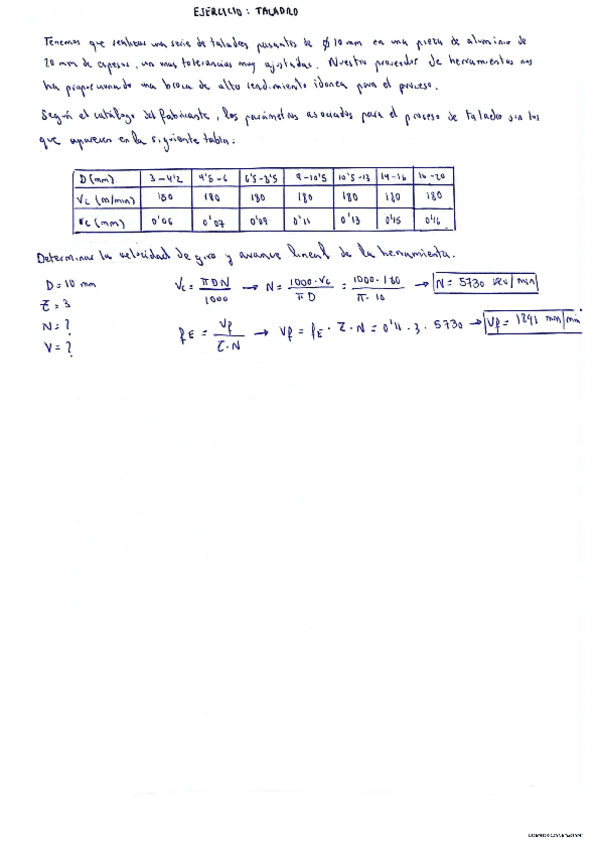 EJERCICIO: TALADRO
Tenemos que realizar una serie de taladros pasantes de ϕ 10 mm en una pieza de aluminio de
20 mm de espesor, con unas tolerancias muy ajustadas. Nuestro proveedor de herramientas nos
ha proporcionado una broca de alto rendimiento idonea para el proceso.
Según el catálogo del fabricante, los parámetros asociados para el proceso de taladro son los
que aparecen en la siguiente tabla:
D (mm) 3-4'2 4'5-6 6'5-8'5 9-10'5 10'5-13 14-16 16-20
Vc (m/min) 180 180 180 180 180 180 180
fE (mm) 0'06 0'07 0'09 0'11 0'13 0'15 0'16
Determinar la velocidad de giro y avance lineal de la herramienta.
D = 10 mm Vc = πDN/1000 → N = 1000·Vc/πD = 1000·180/π·10 → N = 5730 rev/min
Z = 3
N = ? fE = Vf/Z·N → Vf = fE · Z · N = 0'11 · 3 · 5730 → Vf = 1891 mm/min
V = ?